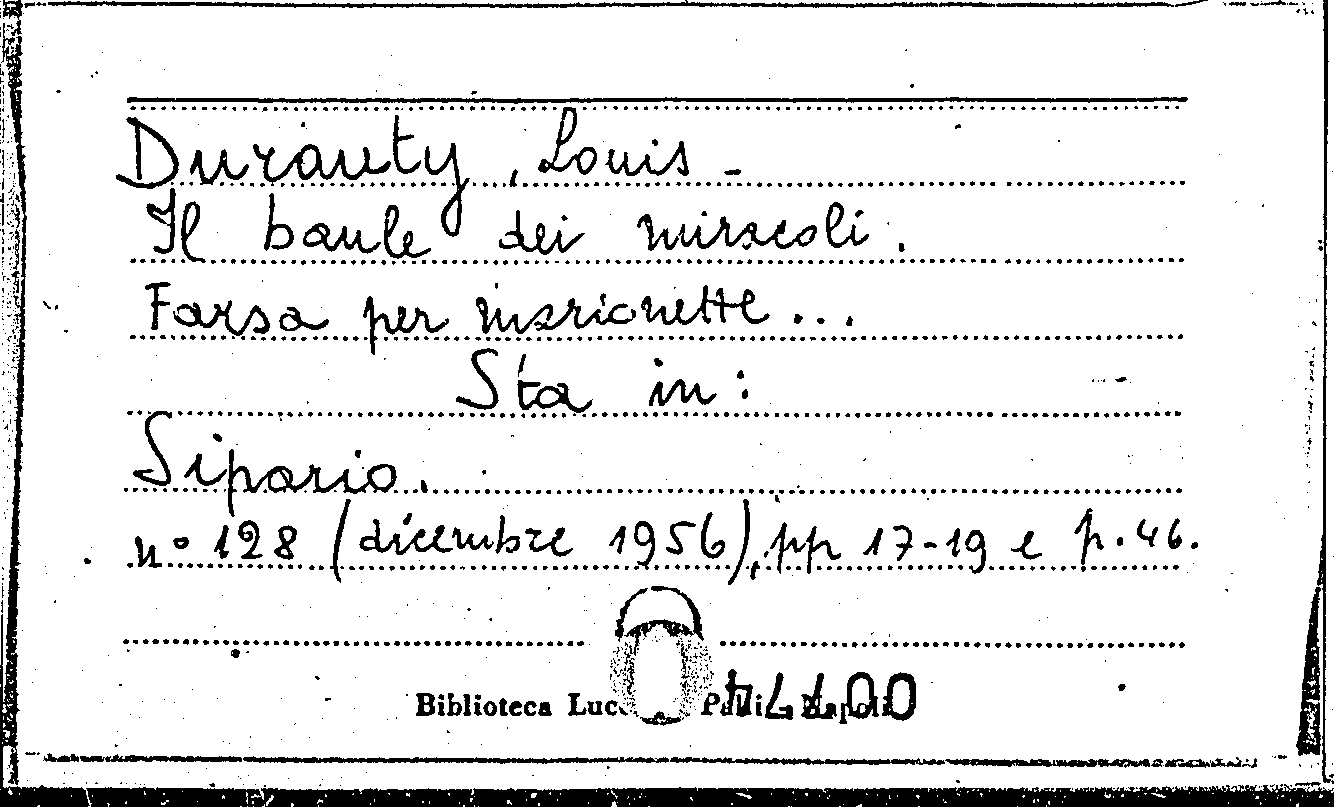 Durauty, Louis -
Il baule dei miracoli.
Farsa per marionette...
Sta in:
Sipario.
n° 128 (dicembre 1956), pp 17-19 e p. 46.
Biblioteca Napoli